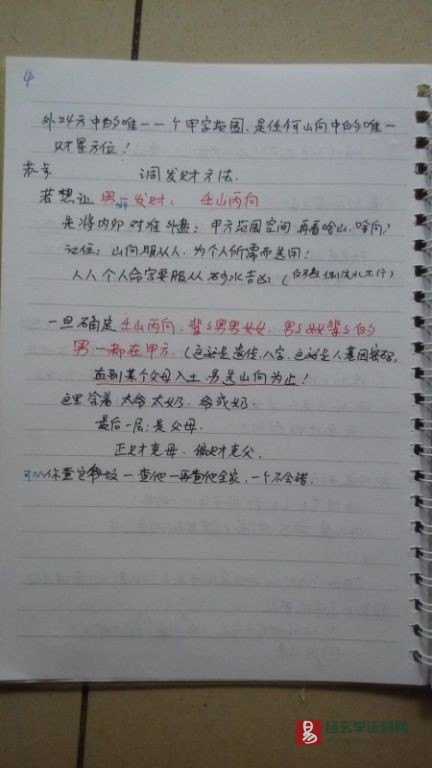 4
外24方中的唯一一个甲字范围,是任何山向中的唯一
财星方位!
调发财方法.
若想让男发财: 壬山丙向
先将内卯对准外盘: 甲方范围空间 再看啥山、啥向?
记住: 山向服从人, 为个人所需而选用!
人人个人命宫要服从 水吉凶(
一旦确定壬山丙向, 辈辈男男女女, 男女辈辈的
男一都在甲方.(这就是遗传.八字.这就是人基因密码,
直到某个父母入土.另选山向为止!
这里含着 太爷太奶. 爷或奶.
最后一层: 是父母.
正财克母. 偏财克父.
你查它 一查他一再查他全家, 一个不会错.
易 经玄学资料网